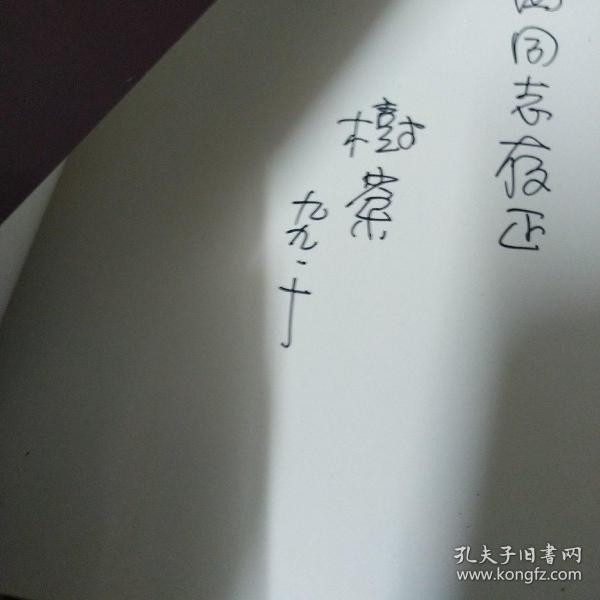 同志存正
樹棻
九九.十
孔夫子旧書网
www.kongfz.com